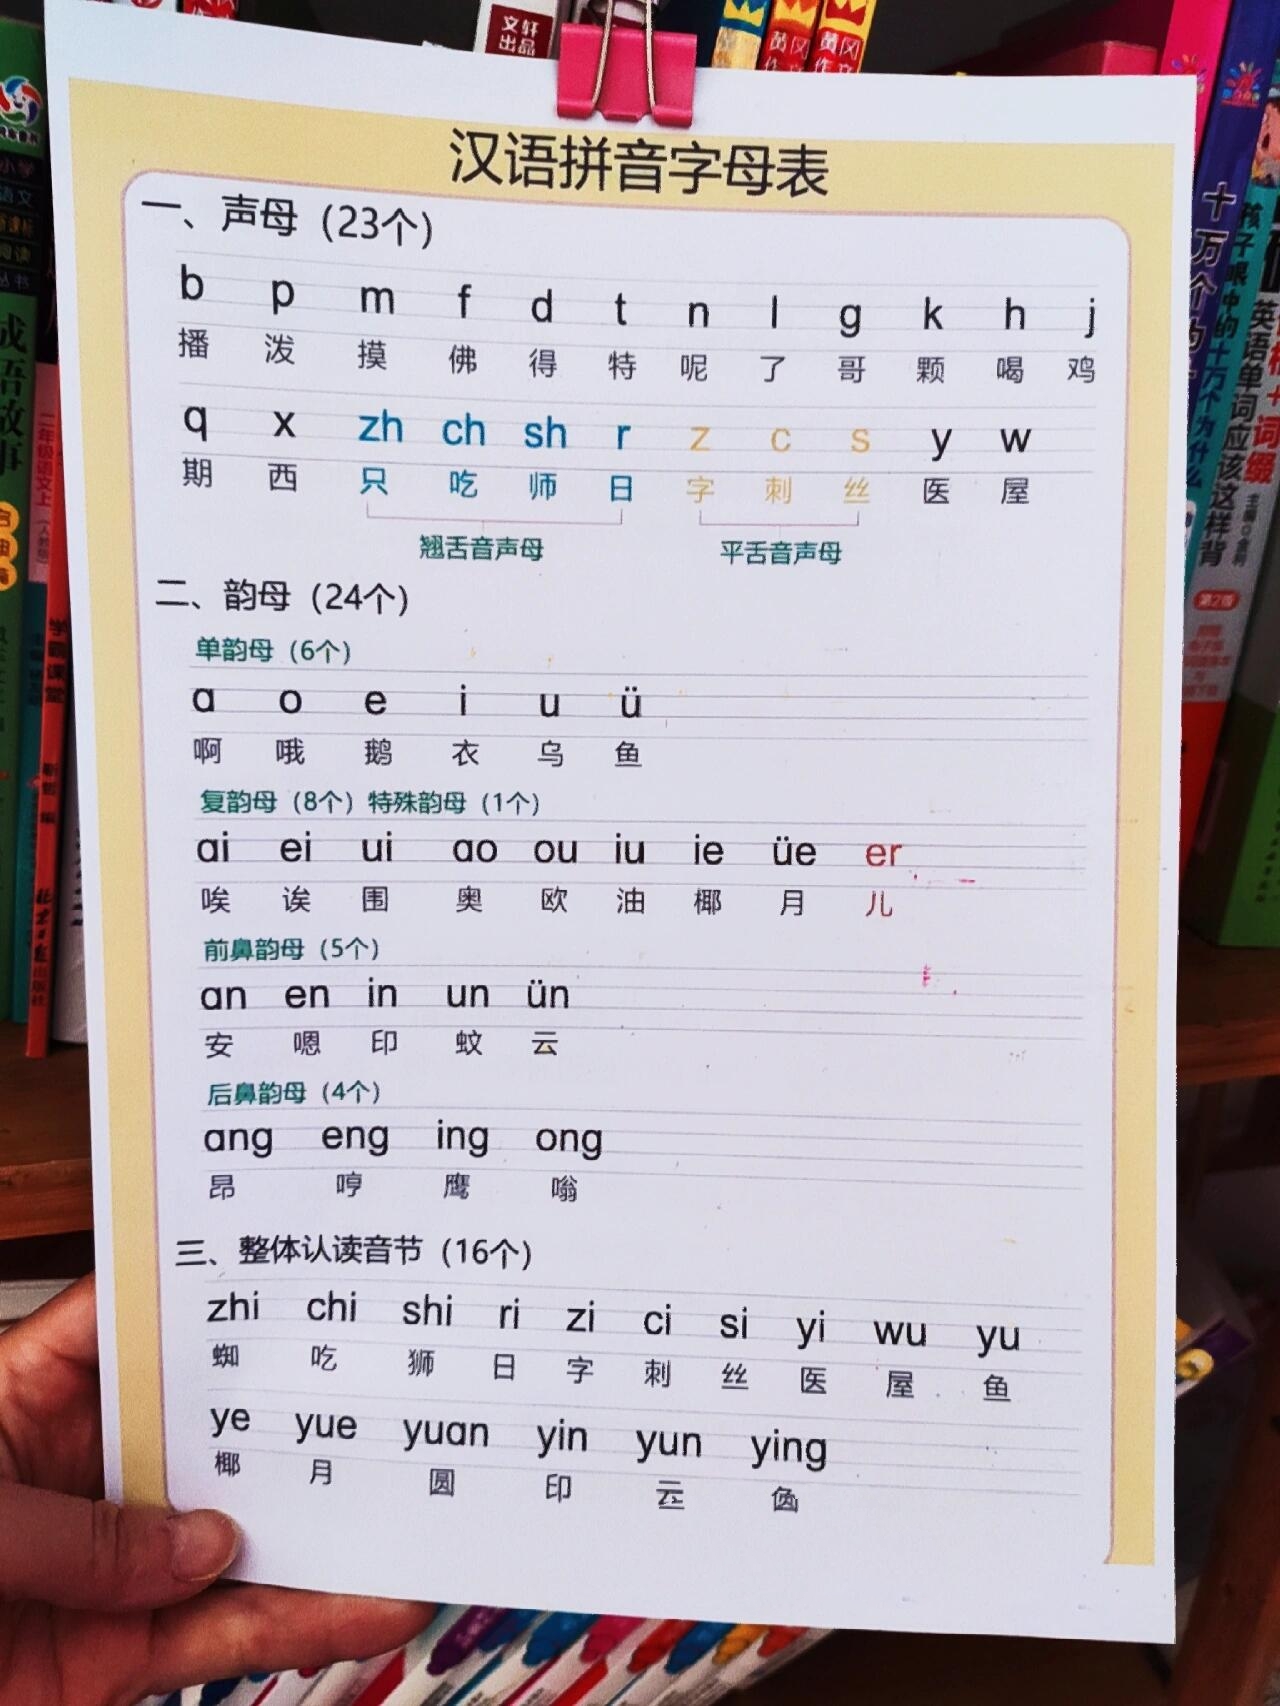 文轩
出品
黄冈
黄冈
汉语拼音字母表
一、声母（23个）
b p m f d t n l g k h j
播 泼 摸 佛 得 特 呢 了 哥 颗 喝 鸡
q x zh ch sh r z c s y w
期 西 只 吃 师 日 字 刺 丝 医 屋
翘舌音声母 平舌音声母
二、韵母（24个）
单韵母（6个）
a o e i u ü
啊 哦 鹅 衣 乌 鱼
复韵母（8个）特殊韵母（1个）
ai ei ui ao ou iu ie üe er
唉 诶 围 奥 欧 油 椰 月 儿
前鼻韵母（5个）
an en in un ün
安 嗯 印 蚊 云
后鼻韵母（4个）
ang eng ing ong
昂 哼 鹰 嗡
三、整体认读音节（16个）
zhi chi shi ri zi ci si yi wu yu
蜘 吃 狮 日 字 刺 丝 医 屋 鱼
ye yue yuan yin yun ying
椰 月 圆 印 云
成语故事
二年级语文上
学霸课堂
十万个为什么
孩子眼中的十万个为什么
英语单词应该这样背
第2版